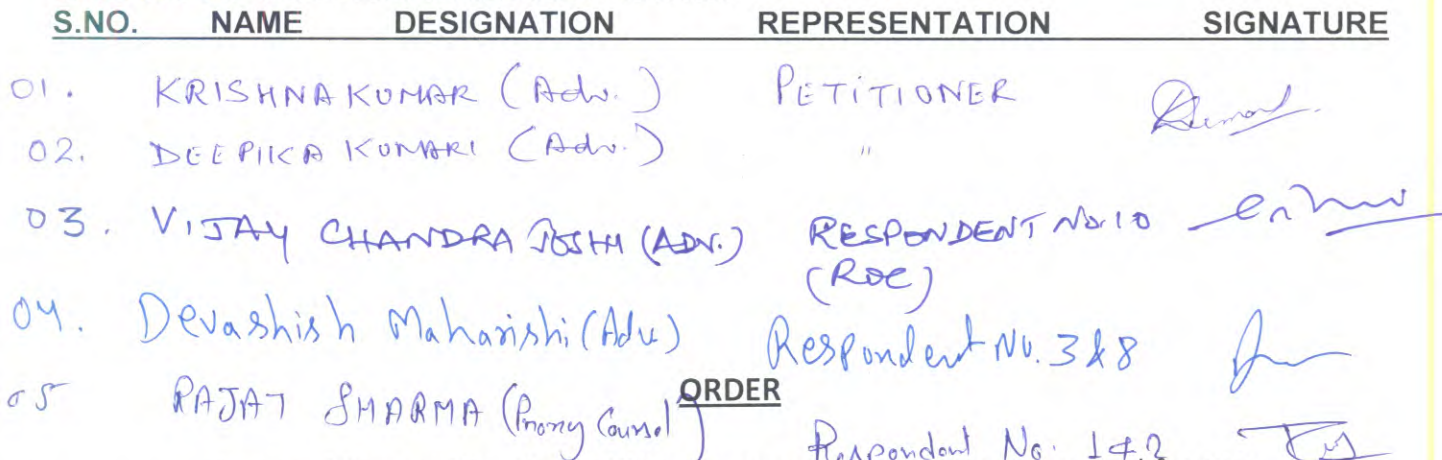 S.NO. NAME DESIGNATION REPRESENTATION SIGNATURE
01. KRISHNA KUMAR (Adv.) PETITIONER
02. DEEPIKA KUMARI (Adv.) "
03. VIJAY CHANDRA JOSHI (ADV.) RESPONDENT No.10
(ROC)
04. Devashish Maharishi (Adv) Respondent No. 3 & 8
ORDER
05 RAJAT SHARMA (Proxy Counsel)
Respondent No. 1 & 2